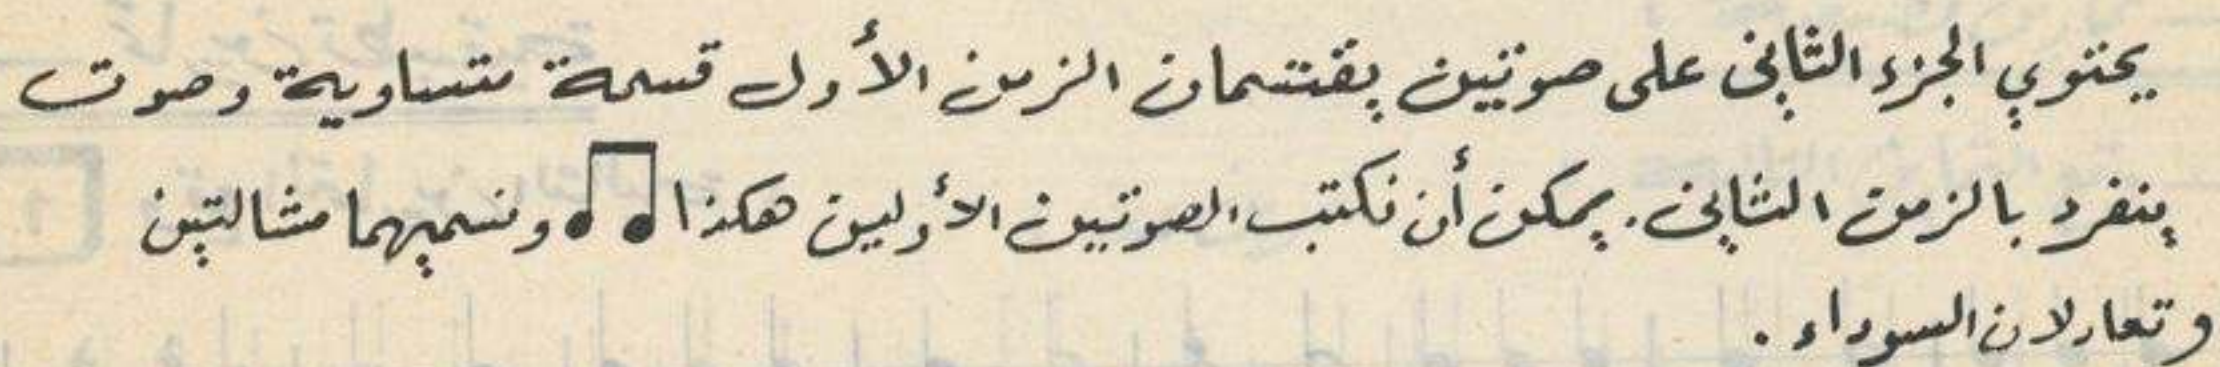 يحتوي الجزء الثاني على صوتين يقتسمان الزمن الأول قسمة متساوية وصوت
ينفرد بالزمن الثاني. يمكن أن نكتب الصوتين الأولين هكذا ♫ ونسميهما مشالتين
وتعادلان السوداء.